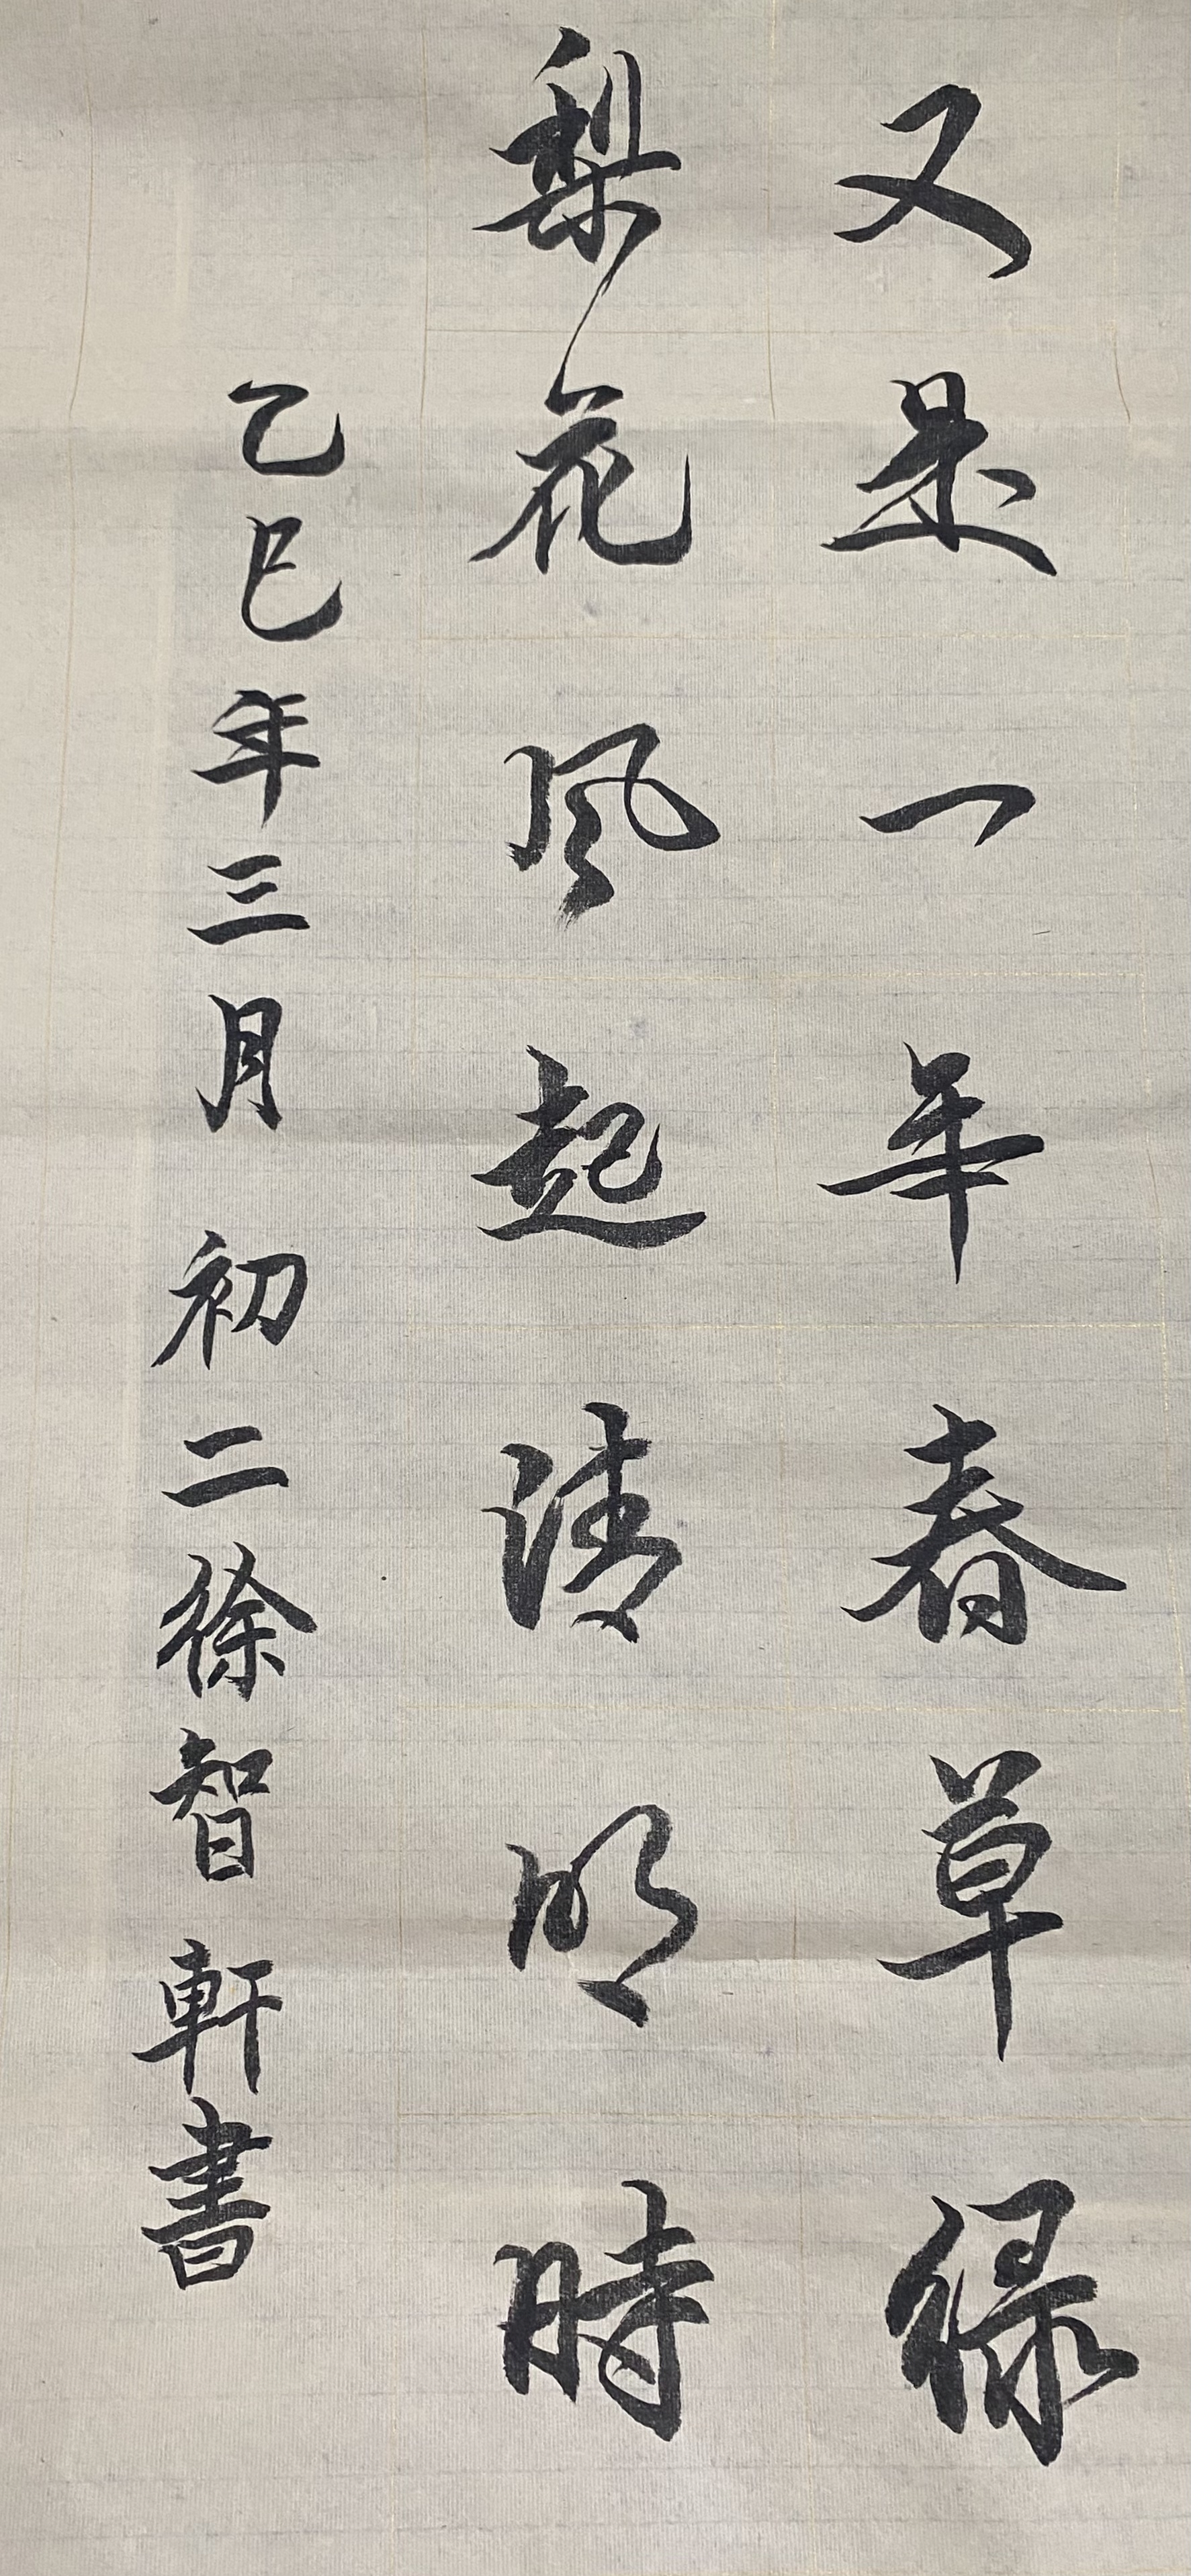 又是一年春草緑
梨花風起清明時
乙巳年三月初二徐智軒書